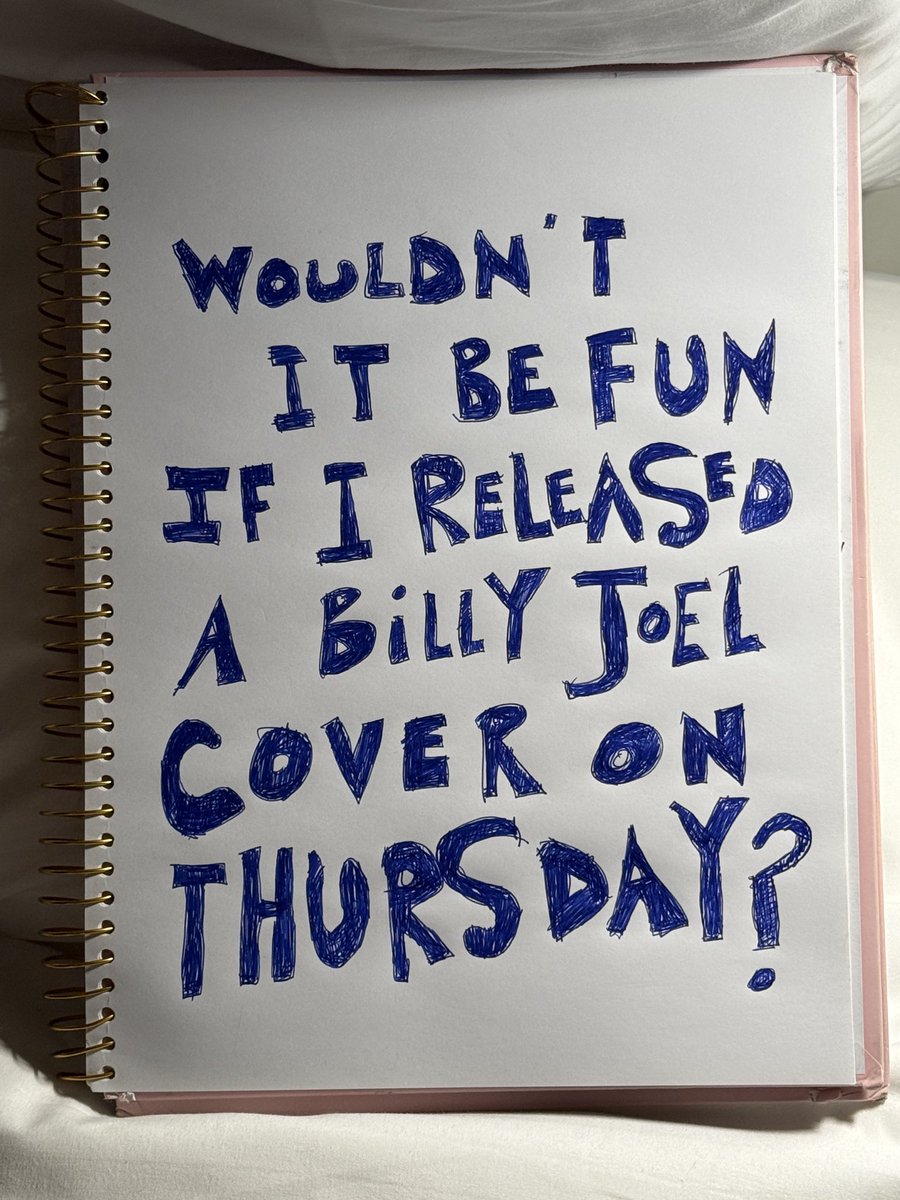 WOULDN'T
IT BE FUN
IF I RELEASED
A BiLLY JOEL
COVER ON
THURSDAY?